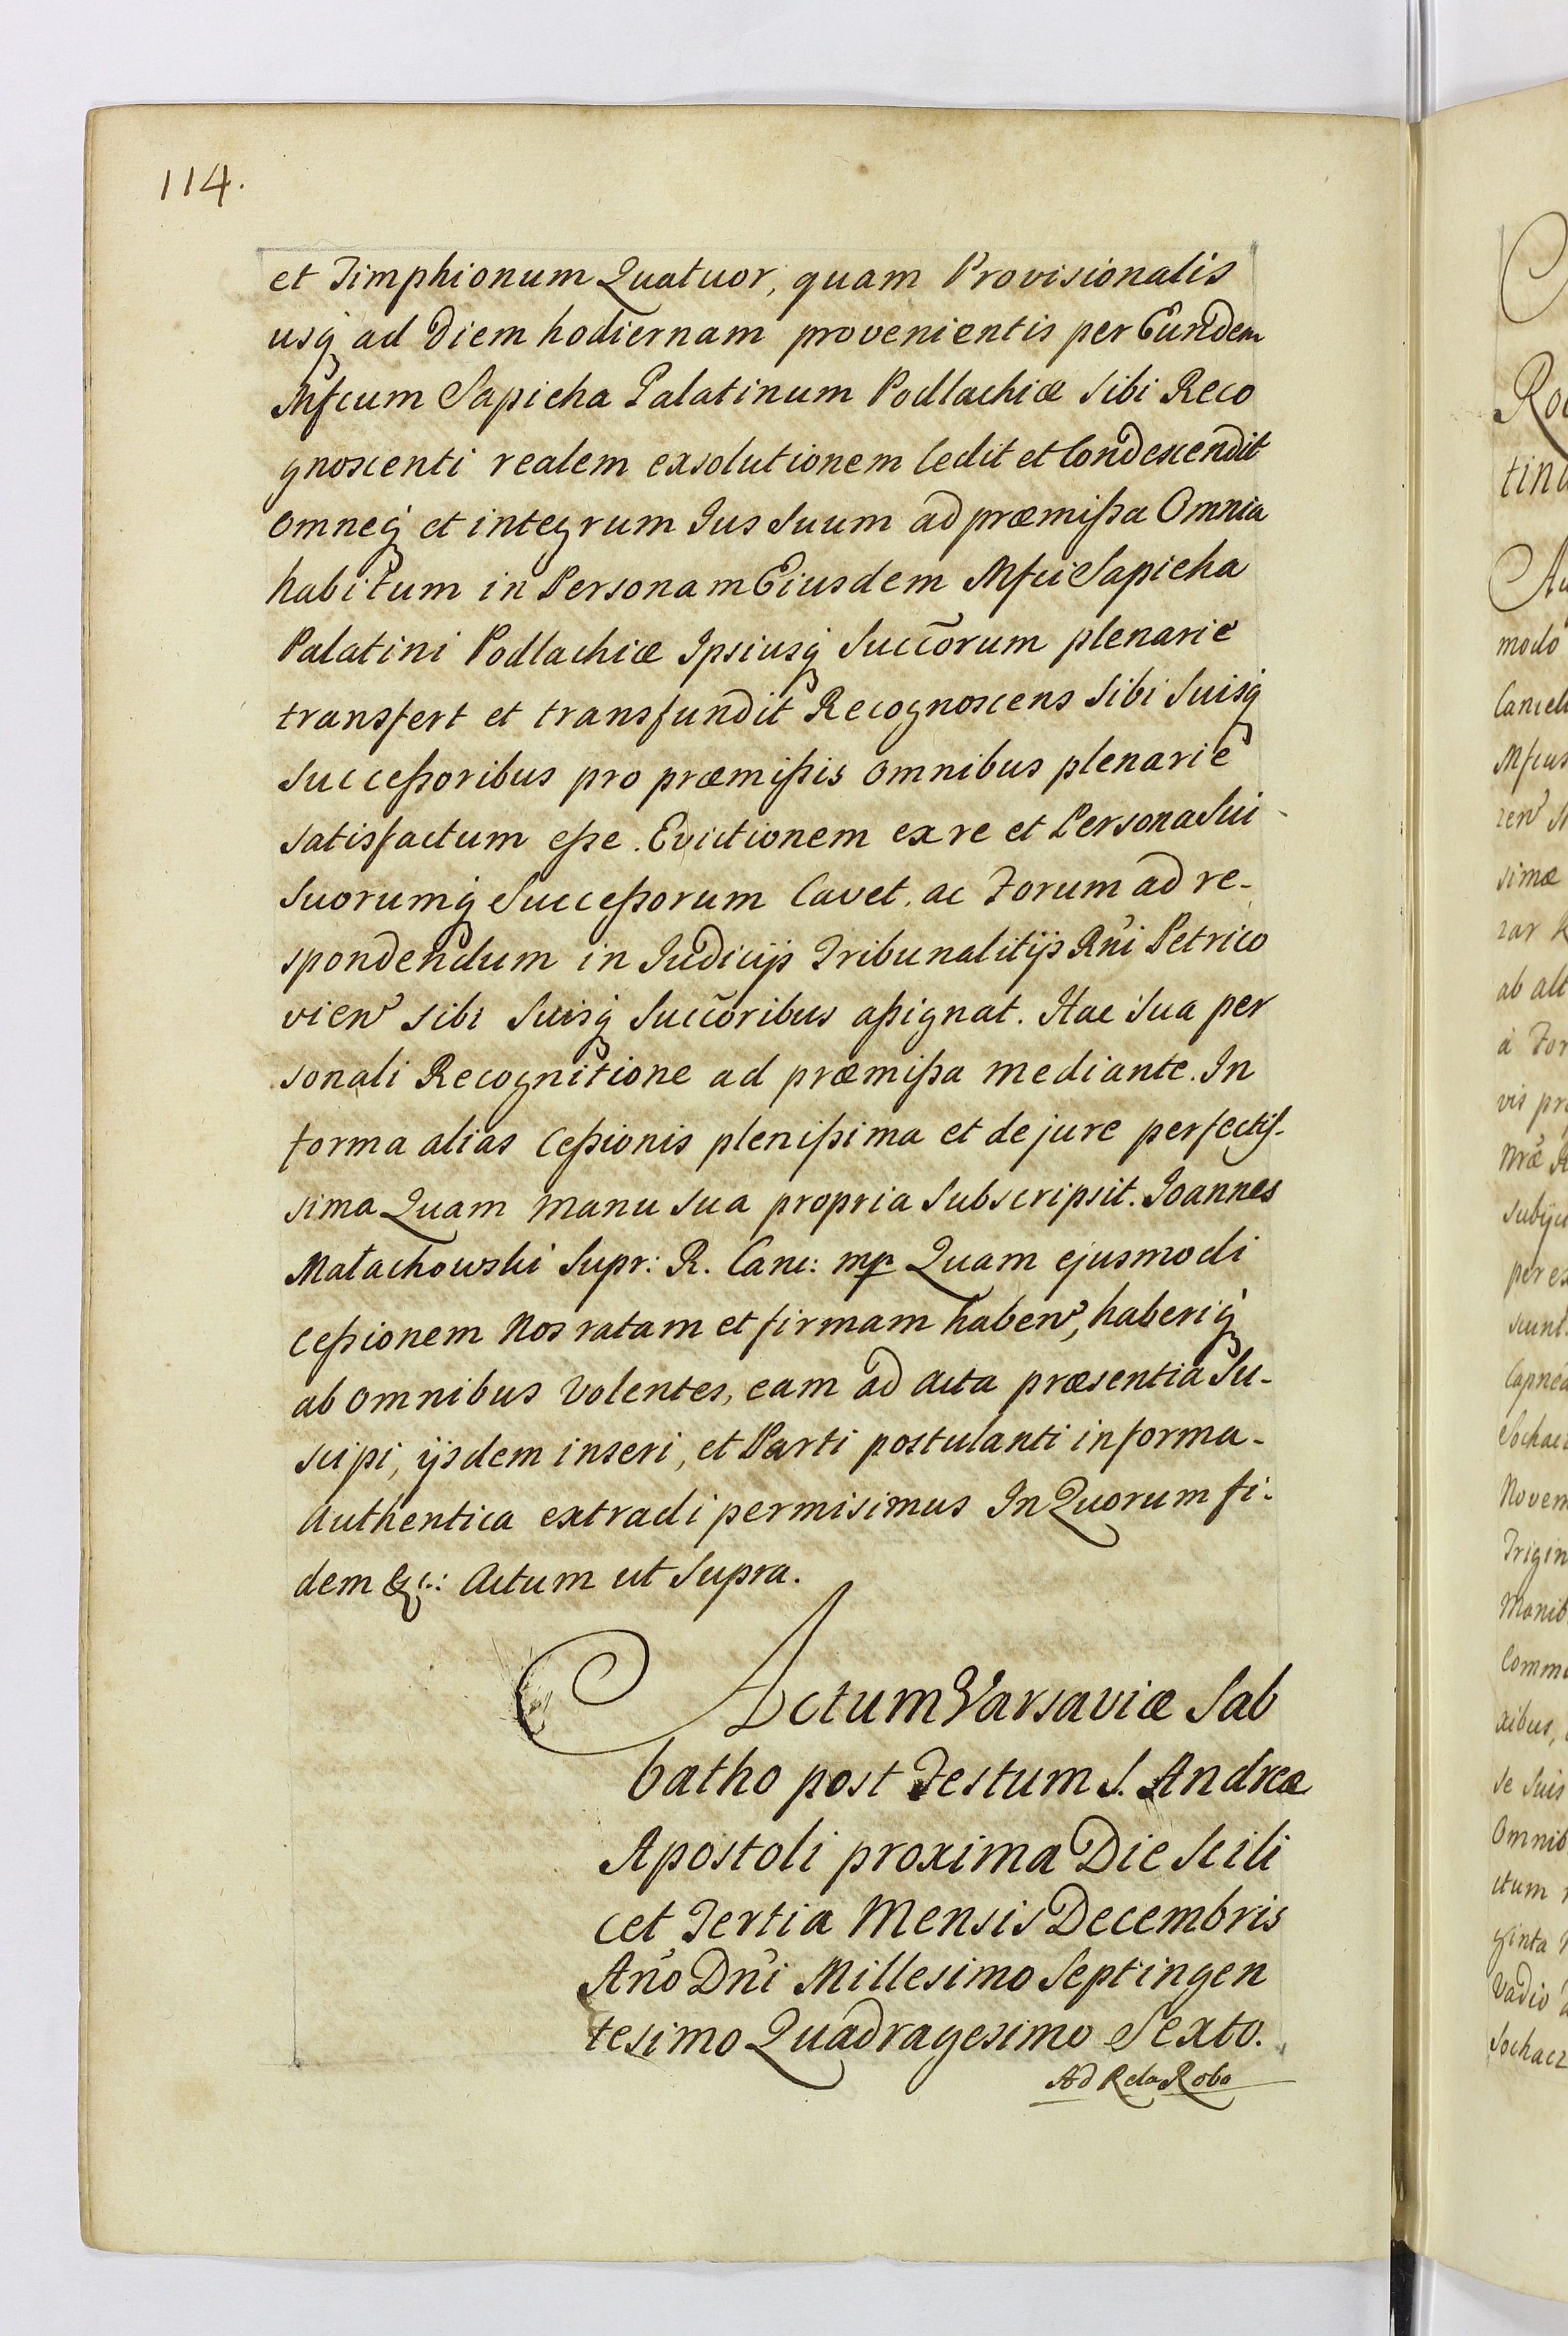 114.
et Timphionum Quatuor, quam Provisionalis
usq ad Diem hodiernam provenientis per Eundem
Mfcum Sapieha Palatinum Podlachiæ Sibi Reco
gnoscenti realem exsolutionem Cedit et Condescendit
Omneq et integrum Jus Suum ad præmißa Omnia
habitum in Personam Eiusdem Mfci Sapieha
Palatini Podlachiæ Ipsiusq Succ̃orum plenarie
transfert et transfundit Recognoscens Sibi Suisq
Succeßoribus pro præmißis omnibus plenarie
satisfactum eße. Evictionem ex re et Persona Sui
Suorumq Succeßorum Cavet. ac Forum ad re-
spondendum in Judicijs Tribunalitijs Rñi Petrico
vien̄ sibi Suisq Succ̃oribus aßignat. Hac Sua per
sonali Recognitione ad præmißa mediante. In
forma alias Ceßionis plenißima et de jure perfectis-
sima Quam manu sua propria Subscripsit. Joannes
Małachowski Supr: R. Canc: mp. Quam ejusmodi
ceßionem Nos ratam et firmam haben̄, haberiq
ab omnibus Volentes, eam ad acta præsentia Su-
scipi, ijsdem inseri, et Parti postulanti in forma-
Authentica extradi permisimus In Quorum fi-
dem &c: Actum ut Supra.
Actum Varsaviæ Sab
batho post Festum S. Andreæ
Apostoli proxima Die Scili
cet Tertia Mensis Decembris
Año Dñi Millesimo Septingen
tesimo Quadragesimo Sexto.
Ad Rela Roba
Roc
tinu
modo
Mfcus
simæ
ab alt
à For
vis pr
per ex
sciunt
Capnea
Sochac
Novem
Trigin
Manib
Comm
xibus,
se Suis
Omnib
ctum
ginta
Vadio
Sochacz